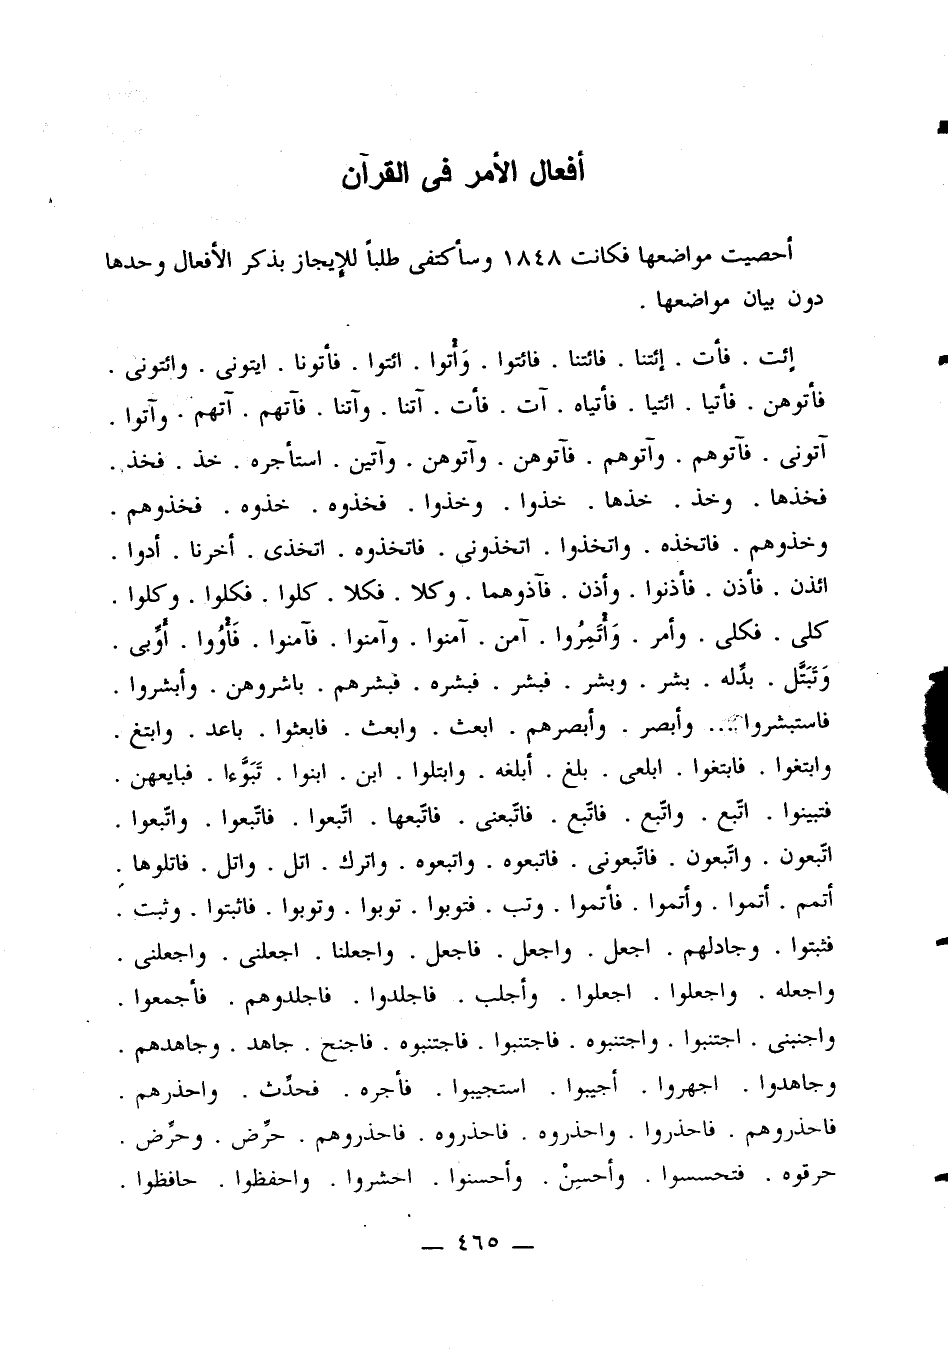 أفعال الأمر فى القرآن
أحصيت مواضعها فكانت ١٨٤٨ وسأكتفى طلباً للإيجاز بذكر الأفعال وحدها
دون بيان مواضعها .
إئت . فأت . إئتنا . فائتنا . فائتوا . وَأْتوا . ائتوا . فأتونا . ايتونى . وائتونى .
فأتوهن . فأتيا . ائتيا . فأتياه . آت . فأت . آتنا . وآتنا . فآتهم . آتهم . وآتوا .
آتونى . فآتوهم . وآتوهم . فآتوهن . وآتوهن . وآتين . استأجره . خذ . فخذ .
فخذها . وخذ . خذها . خذوا . وخذوا . فخذوه . خذوه . فخذوهم .
وخذوهم . فاتخذه . واتخذوا . اتخذونى . فاتخذوه . اتخذى . أخرنا . أدوا .
ائذن . فأذن . فأذنوا . وأذن . فآذوهما . وكلا . فكلا . كلوا . فكلوا . وكلوا .
كلى . فكلى . وأمر . وَأْتَمِرُوا . آمن . آمنوا . وآمنوا . فآمنوا . فَأْوُوا . أَوِّبى .
وَتَبَتَّل . بدِّله . بشر . وبشر . فبشر . فبشره . فبشرهم . باشروهن . وأبشروا .
فاستبشروا ... وأبصر . وأبصرهم . ابعث . وابعث . فابعثوا . باعد . وابتغ .
وابتغوا . فابتغوا . ابلعى . بلغ . أبلغه . وابتلوا . ابن . ابنوا . تَبَوَّءا . فبايعهن .
فتبينوا . اتّبع . واتّبع . فاتّبع . فاتّبعنى . فاتّبعها . اتّبعوا . فاتّبعوا . واتّبعوا .
اتّبعون . واتّبعون . فاتّبعونى . فاتبعوه . واتبعوه . واترك . اتل . واتل . فاتلوها .
أتمم . أتموا . وأتموا . فأتموا . وتب . فتوبوا . توبوا . وتوبوا . فاثبتوا . وثبت .
فثبتوا . وجادلهم . اجعل . واجعل . فاجعل . واجعلنا . اجعلنى . واجعلنى .
واجعله . واجعلوا . اجعلوا . وأجلب . فاجلدوا . فاجلدوهم . فأجمعوا .
واجنبنى . اجتنبوا . واجتنبوه . فاجتنبوا . فاجتنبوه . فاجنح . جاهد . وجاهدهم .
وجاهدوا . اجهروا . أجيبوا . استجيبوا . فأجره . فحدِّث . واحذرهم .
فاحذروهم . فاحذروا . واحذروه . فاحذروه . فاحذروهم . حرِّض . وحرِّض .
حرقوه . فتحسسوا . وأحسِنْ . وأحسنوا . احشروا . واحفظوا . حافظوا .
— ٤٦٥ —